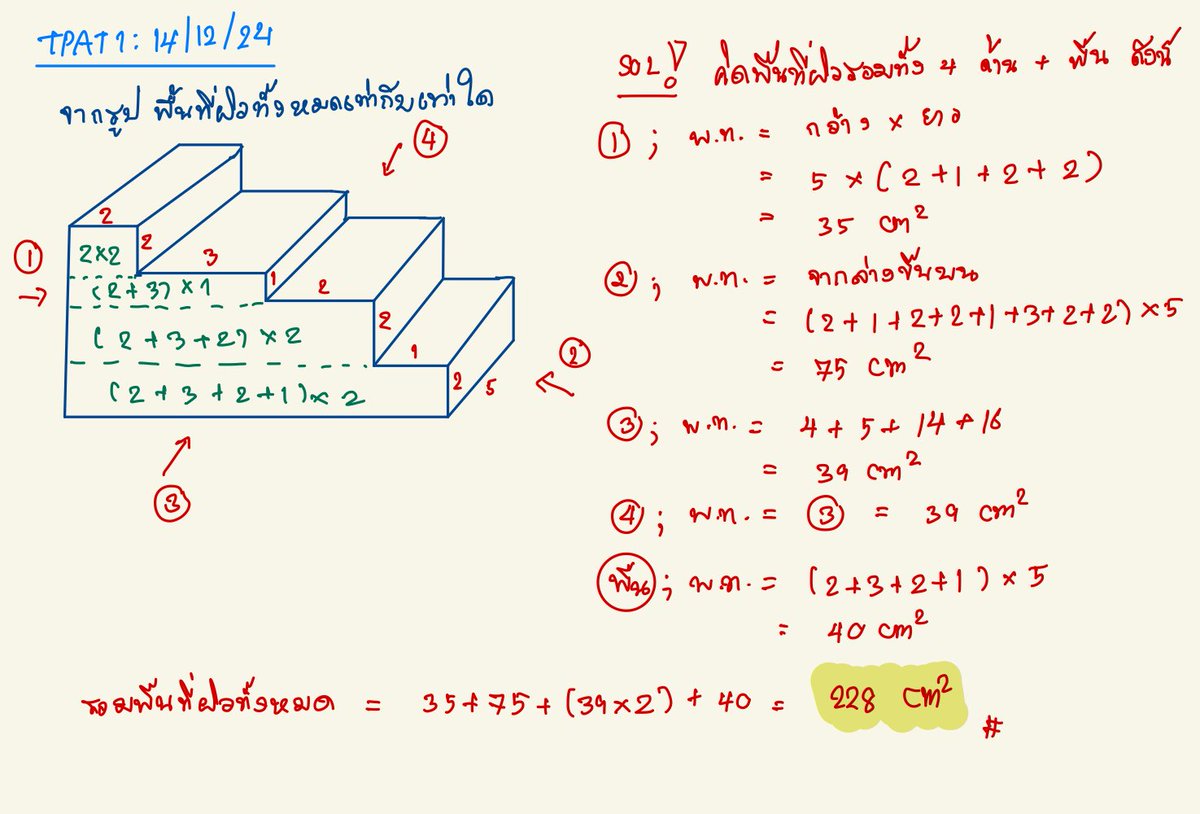 TPAT1: 14/12/24
จากรูป พื้นที่ผิวทั้งหมดเท่ากับเท่าใด
④
2
①
2×2
2
3
(2+3)×1
1
2
(2+3+2)×2
2
1
②
(2+3+2+1)×2
2
5
③
SOL! คิดพื้นที่ผิวรอบทั้ง 4 ด้าน + พื้น ดังนี้
① ; พ.ท. = กว้าง × ยาว
= 5 × (2+1+2+2)
= 35 cm²
② ; พ.ท. = จากล่างขึ้นบน
= (2+1+2+2+1+3+2+2)×5
= 75 cm²
③ ; พ.ท. = 4+5+14+16
= 39 cm²
④ ; พ.ท. = ③ = 39 cm²
พื้น ; พ.ท. = (2+3+2+1)×5
= 40 cm²
รวมพื้นที่ผิวทั้งหมด = 35+75+(39×2)+40 = 228 cm² #